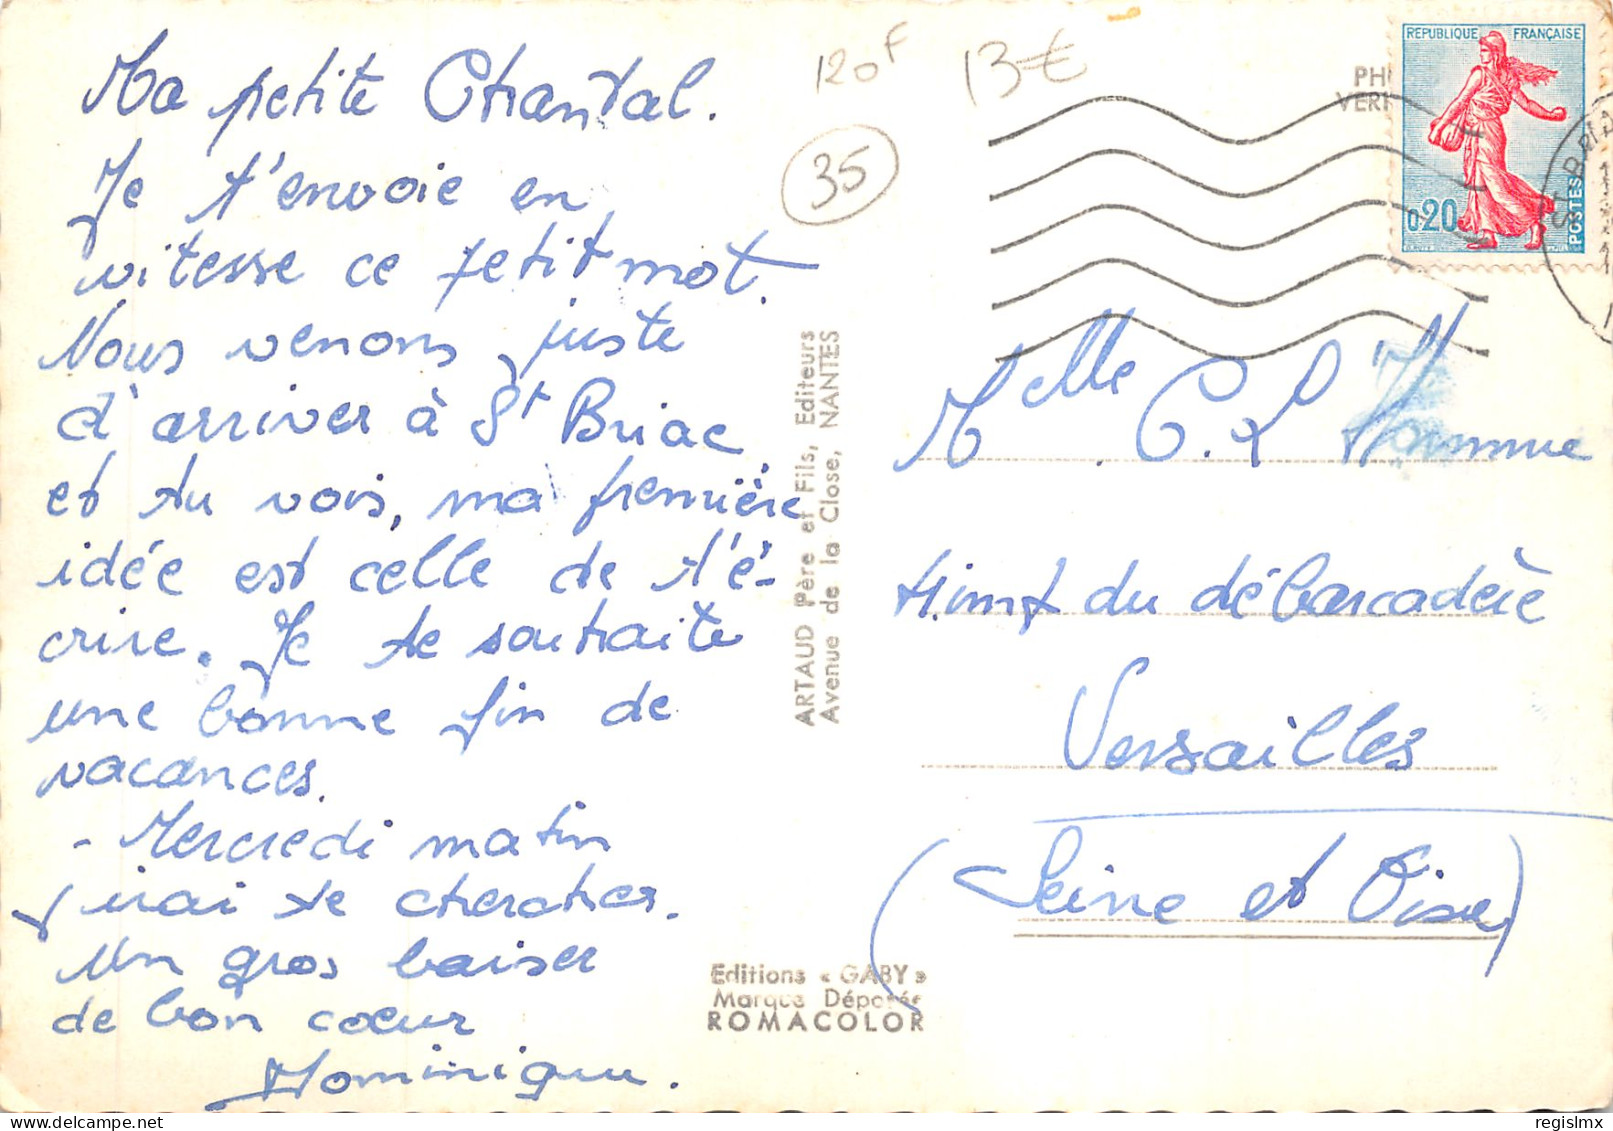 Ma petite Chantal.
Je t'envoie en
vitesse ce petit mot.
Nous venons juste
d'arriver à St Briac
et tu vois, ma première
idée est celle de t'é-
crire. Je te souhaite
une bonne fin de
vacances.
- Mercredi matin
j'irai te chercher.
Un gros baiser
de bon cœur
Dominique.
120F
13€
35
ARTAUD Père et Fils, Editeurs
Avenue de la Close, NANTES
Editions « GABY »
Marque Déposée
ROMACOLOR
PH
VERI
REPUBLIQUE FRANÇAISE
0,20
POSTES
ST BRIA
Melle C. L
du débarcadère
Versailles
(Seine et Oise)
regislmx